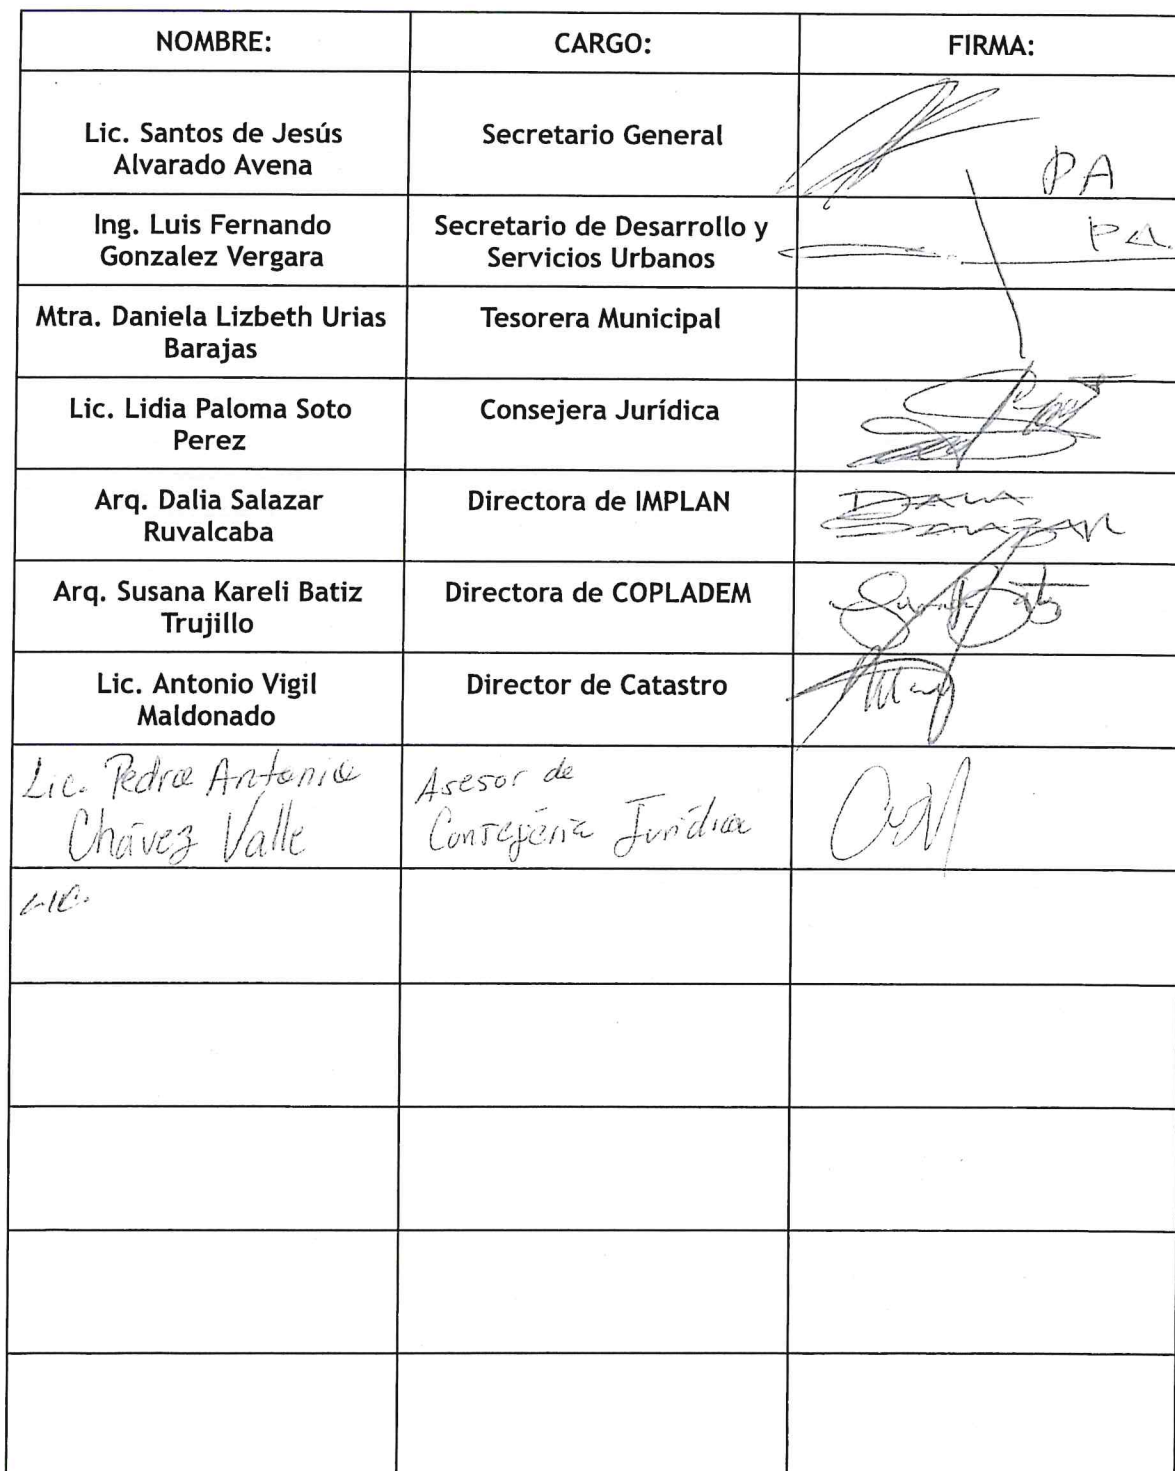 NOMBRE:
CARGO:
FIRMA:
Lic. Santos de Jesús
Alvarado Avena
Secretario General
PA
Ing. Luis Fernando
Gonzalez Vergara
Secretario de Desarrollo y
Servicios Urbanos
PA.
Mtra. Daniela Lizbeth Urias
Barajas
Tesorera Municipal
Lic. Lidia Paloma Soto
Perez
Consejera Jurídica
Arq. Dalia Salazar
Ruvalcaba
Directora de IMPLAN
DALIA
SALAZAR
Arq. Susana Kareli Batiz
Trujillo
Directora de COPLADEM
Lic. Antonio Vigil
Maldonado
Director de Catastro
Lic. Pedro Antonio
Chávez Valle
Asesor de
Consejería Jurídica
LIC.